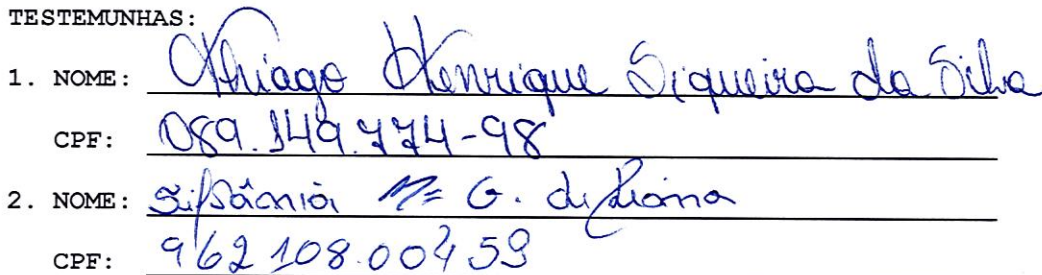 TESTEMUNHAS:
1. NOME: Thiago Henrique Siqueira da Silva
CPF: 089.149.774-98
2. NOME: Mª G. de
CPF: 962108.00459